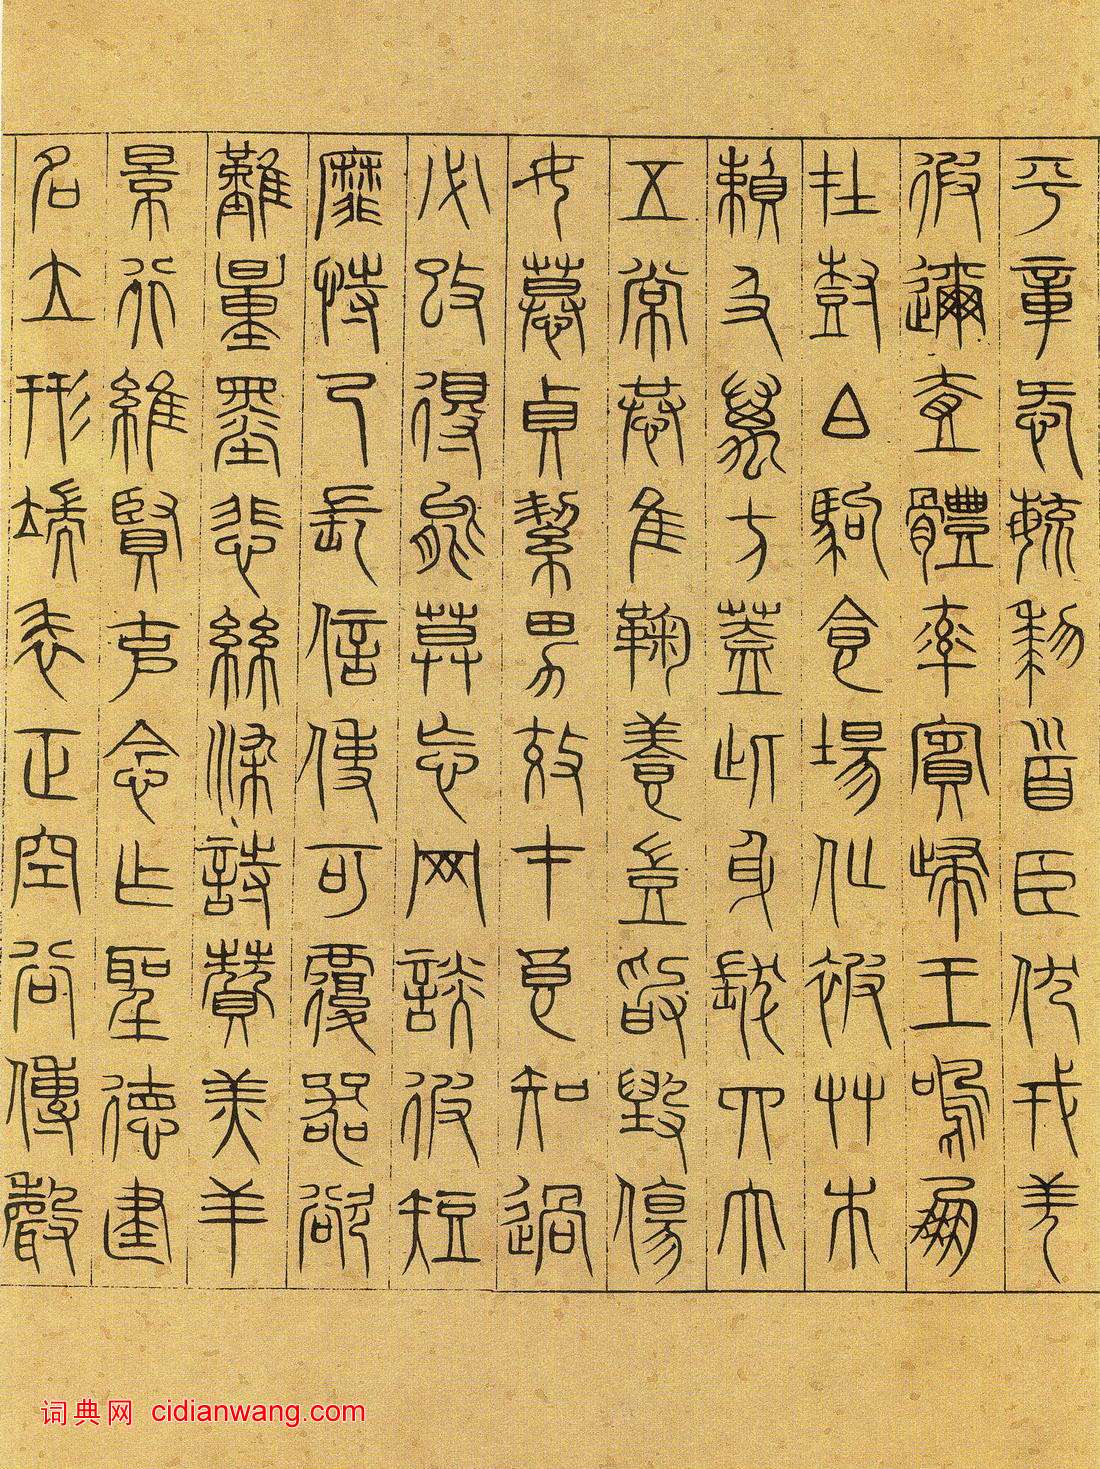 平章㤅毓黎首臣伏戎羌
徦邇壹體率賓歸王鳴鳳
在尌白駒食場化被艸木
賴及萬方蓋此身髮四大
五常恭隹鞠養豈敢毀傷
女慕貞絜男效才良知過
必改得能莫忘网談彼短
靡恃己長信使可覆器欲
難量墨悲絲染詩贊羔羊
景行維賢克念乍聖德建
名立形端表正空谷傳聲
词典网 cidianwang.com